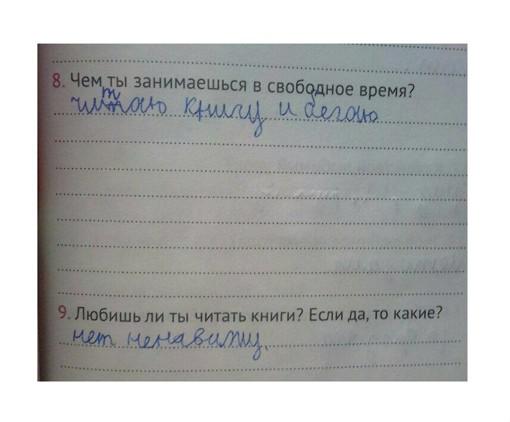 8. Чем ты занимаешься в свободное время?
читаю книгу и бегаю
9. Любишь ли ты читать книги? Если да, то какие?
нет ненавижу.